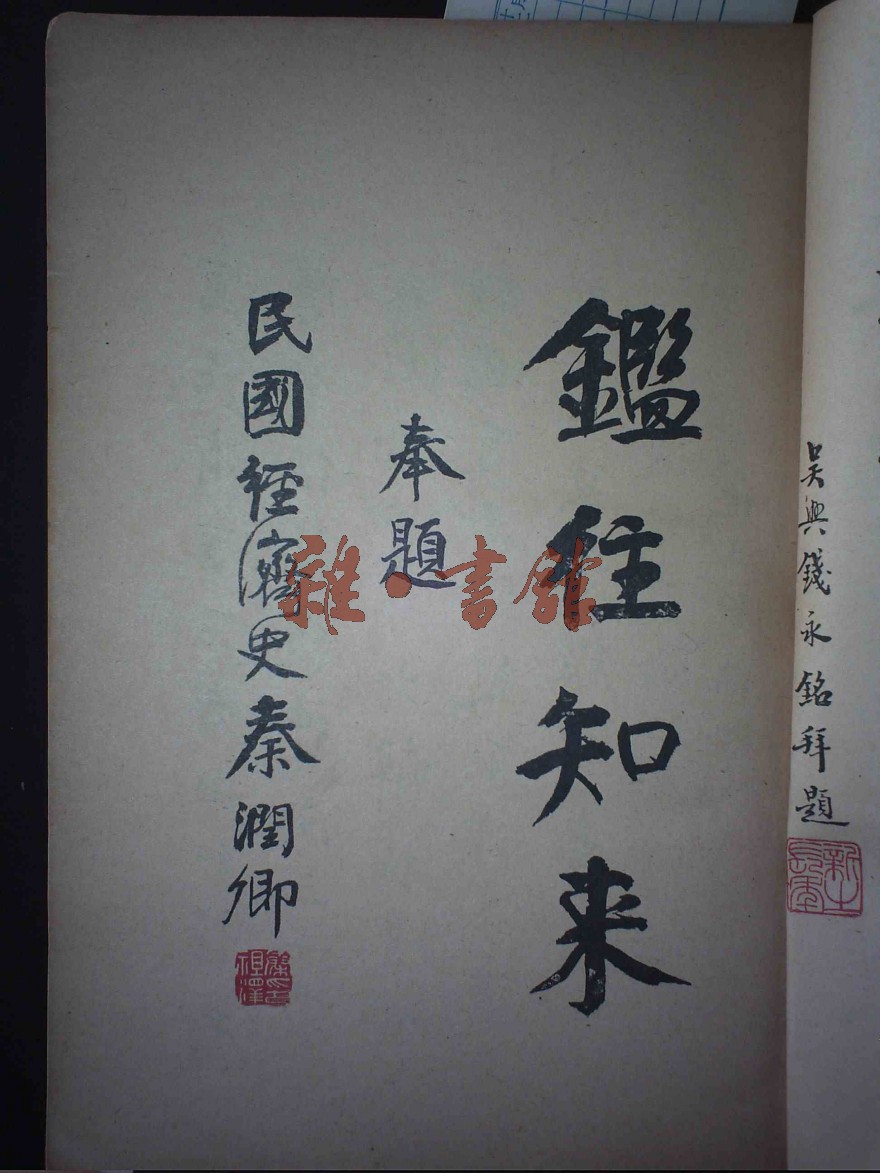 吳興錢永銘拜題
鑑往知来
奉題
民國經濟史秦潤卿
雜·書館